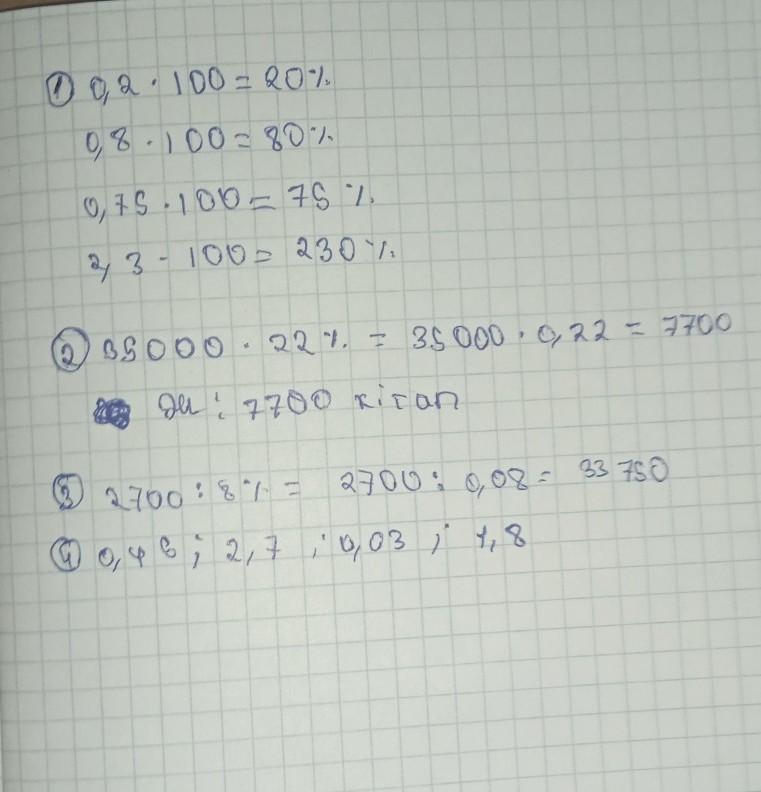 ① 0,2 · 100 = 20%
0,8 · 100 = 80%
0,75 · 100 = 75%
2,3 - 100 = 230%
② 35000 · 22% = 35000 · 0,22 = 7700
: 7700 кітап
③ 2700 : 8% = 2700 : 0,08 = 33750
④ 0,45 ; 2,7 ; 0,03 ; 1,8